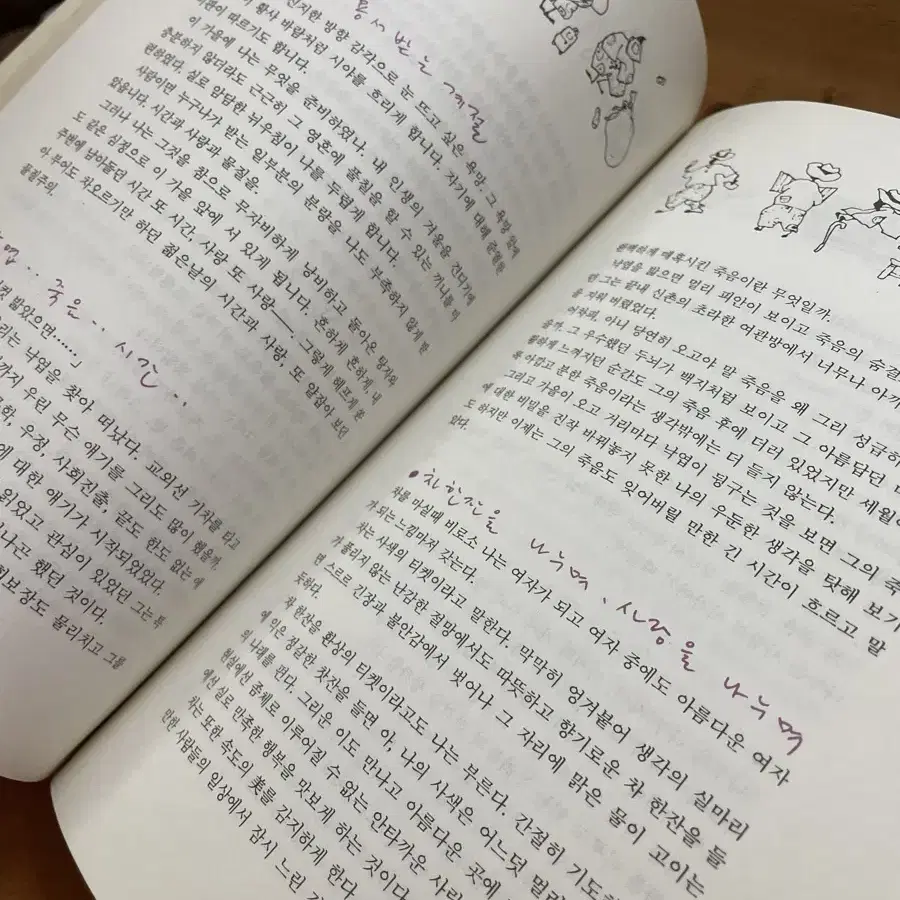 용서 받는 계절
진지한 방향 감각으로 눈 뜨고 싶은 욕망. 그 욕망 앞에
황사 바람처럼 시야를 흐리게 합니다. 자기에 대해
이 따르기도 합니다.
이 가을에 나는 무엇을 준비하였나. 내 인생의 겨울을 견디기에
충분하지 않더라도 근근히 그 영혼에 풀칠을 할 수 있는 끼니를 마
련하였다. 실로 암담한 뉘우침이 나를 두렵게 합니다.
사람이면 누구나가 받는 일부분의 분량을 나도 부족하지 않게 받
았읍니다. 시간과 사랑과 물질을.
그러나 나는 그것을 참으로 무자비하게 낭비하고 돌아온 탕자와
도 같은 심정으로 이 가을 앞에 서 있게 됩니다. 흔하게 흔하게, 내
주변에 남아돌던 시간 또 시간, 사랑 또 사랑— 그렇게 헤프게 쏟
아 부어도 차오르기만 하던 젊은날의 시간과 사랑, 또 말잡아 보던
물질주의.
엽.. 죽을.. 시간...
밟았으면……」
우리는 낙엽을 찾아 떠났다. 교외선 기차를 타고
까지 우린 무슨 얘기를 그리도 많이 했을까.
학, 우정, 사회진출, 끝도 한도 없는 얘
에 대한 얘기가 시작되었었다.
읽었고 관심이 있었던 그는 특
나곤 했던 것이다.
보장도 물리치고 그를
완벽하게 매혹시킨 죽음이란 무엇일까.
낙엽을 밟으면 멀리 피안이 보이고 죽음의 숨결
던 그는 끝내 신촌의 초라한 여관방에서 너무나 아까
을 지워 버렸었다.
어차피, 아니 당연히 오고야 말 죽음을 왜 그리 성급하
을까. 그 우수했던 두뇌가 백지처럼 보이고 그 아름답던
물하게 느껴지던 순간도 그의 죽음 후에 더러 있었지만 세월이
록 아깝고 분한 죽음이라는 생각밖에는 더 들지 않는다.
그리고 가을이 오고 거리마다 낙엽이 뒹구는 것을 보면 그의 죽
에 대한 비밀을 진작 바꿔놓지 못한 나의 우둔한 생각을 탓해 보기
도 하지만 이제는 그의 죽음도 잊어버릴 만한 긴 시간이 흐르고 말
았다.
● 차 한잔을 나누며, 심장을 나누며
차를 마실때 비로소 나는 여자가 되고 여자 중에도 아름다운 여자
가 되는 느낌마저 갖는다.
차는 사색의 티켓이라고 말한다. 막막히 엉겨붙어 생각의 실마리
가 풀리지 않는 난감한 절망에서도 따뜻하고 향기로운 차 한잔을 들
면 스르르 긴장과 불안감에서 벗어나 그 자리에 맑은 물이 고이는
듯하다.
차 한잔을 환상의 티켓이라고도 나는 부른다. 간절히 기도하
에 익은 정갈한 찻잔을 들면 아, 나의 사색은 어느덧 멀리
의 나래를 편다. 그리운 이도 만나고 아름다운 곳에
현실에선 좀체로 이루어질 수 없는 안타까운 사랑
에선 실로 만족한 행복을 맛보게 하는 것이다.
차는 또한 속도의 美를 감지하게 한다.
만한 사람들의 일상에서 잠시 느린